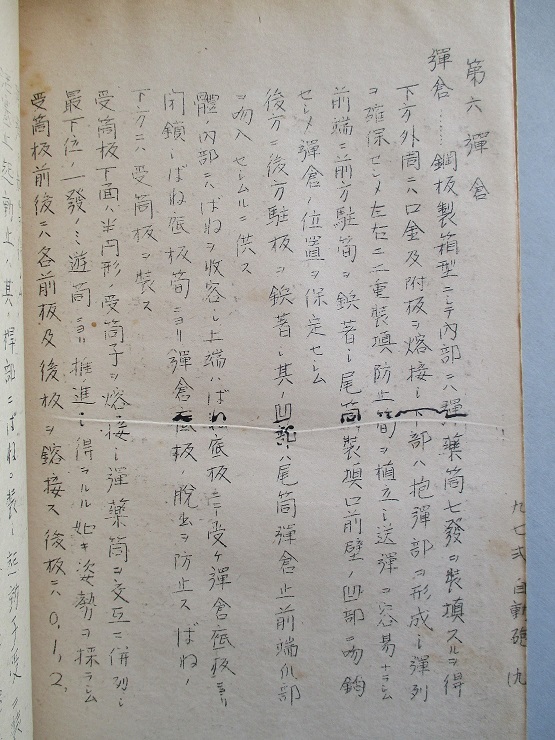 九七式自動砲 九
第六 彈倉
彈倉……鋼板製箱型ニシテ內部ニハ彈藥筒七發ヲ裝填スルヲ得
下方外周ニハ口金及附板ヲ熔接シ下部ハ抱彈部ヲ形成シ彈列
ヲ確保セシメ左右ニ二重裝填防止筍ヲ植立シ送彈ヲ容易ナラシム
前端ニ前方駐筍ヲ鋲著シ尾筒裝填口前壁ノ凹部ニ吻鉤
セシメ彈倉ノ位置ヲ保定セシム
後方ニ後方駐板ヲ鋲著シ其ノ凹部ハ尾筒彈倉止前端爪部
ヲ吻入セシムルニ供ス
體內部ニハばねヲ收容シ上端ハばね底板ニテ受ケ彈倉底板ヨリ
閉鎖シばね底板筍ニヨリ彈倉底板ノ脫出ヲ防止スばねノ
下方ニハ受筒板ヲ裝ス
受筒板下面ノ半円形ノ受筒子ヲ熔接シ彈藥筒ヲ交互ニ併列シ
最下位ノ一發ノミ遊筒ニヨリ推進シ得ラルル如キ姿勢ヲ採ラシム
受筒板前後ニハ各前板及後板ヲ鎔接ス後板ニハ0,1,2,